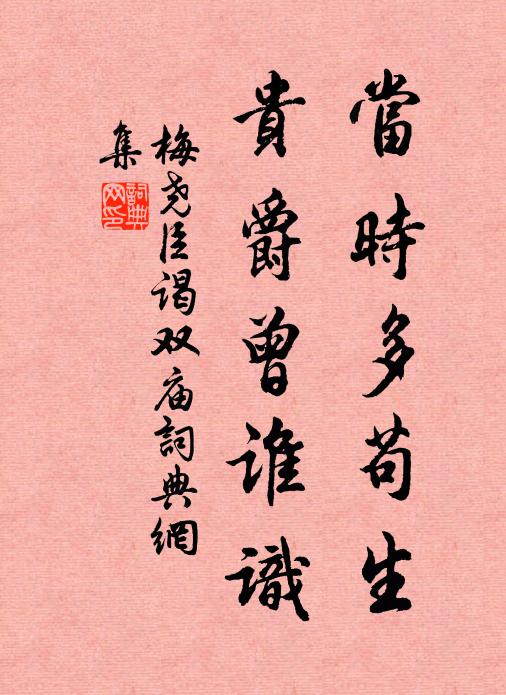 當時多苟生
貴爵曾誰識
梅尧臣谒双庙詞典網
集
詞典
网印